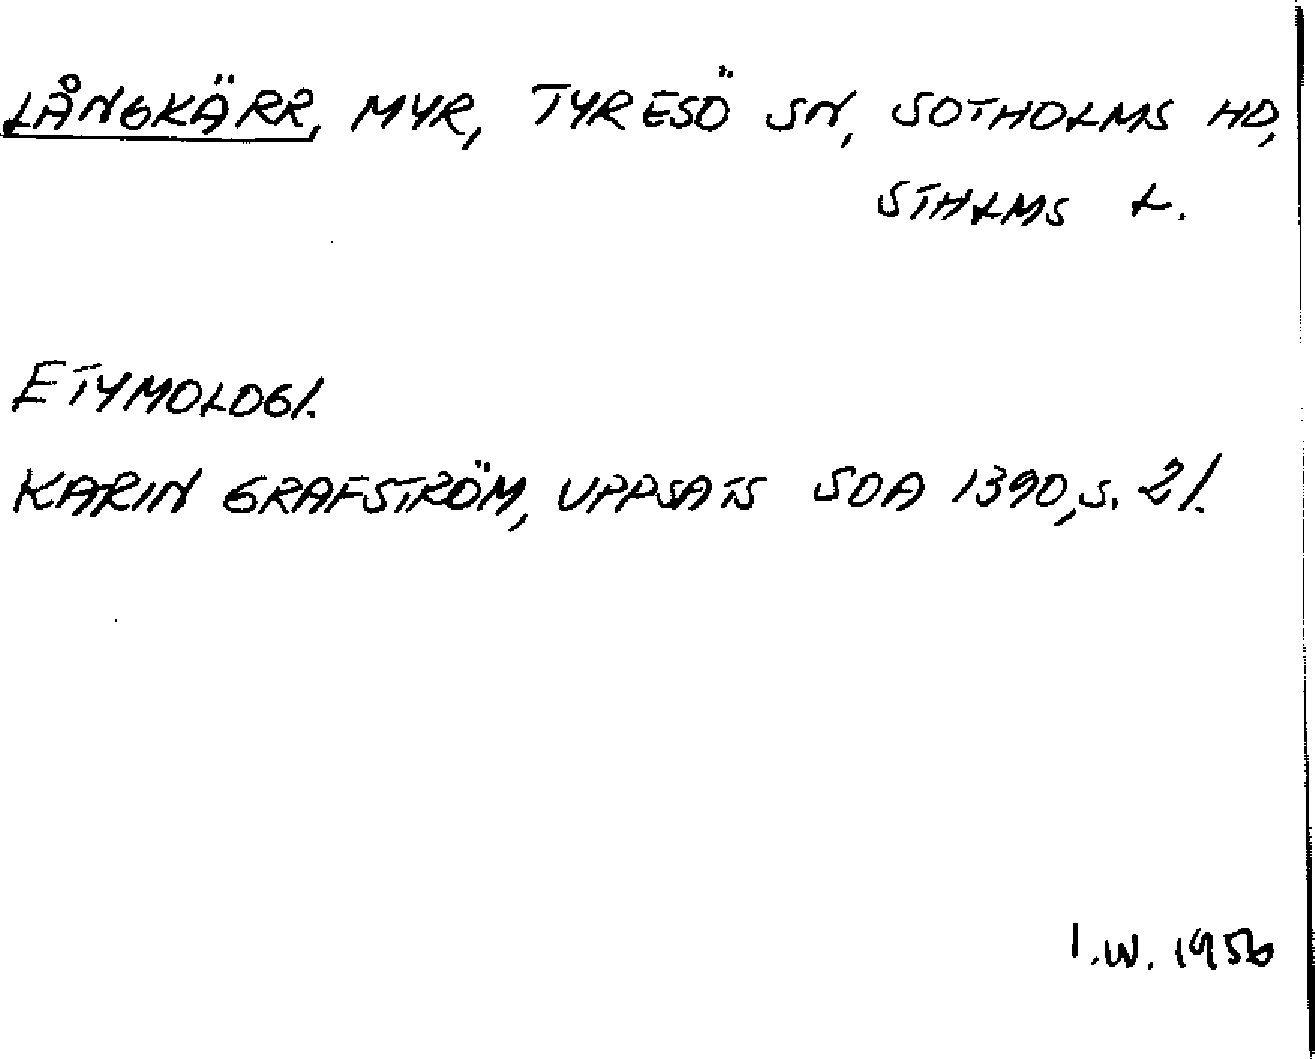 LÅNGKÄRR, MYR, TYRESÖ SN, SOTHOLMS HD,
STHLMS L.
ETYMOLOGI.
KARIN GRAFSTRÖM, UPPSATS SOA 1390, S. 21.
I.W. 1956